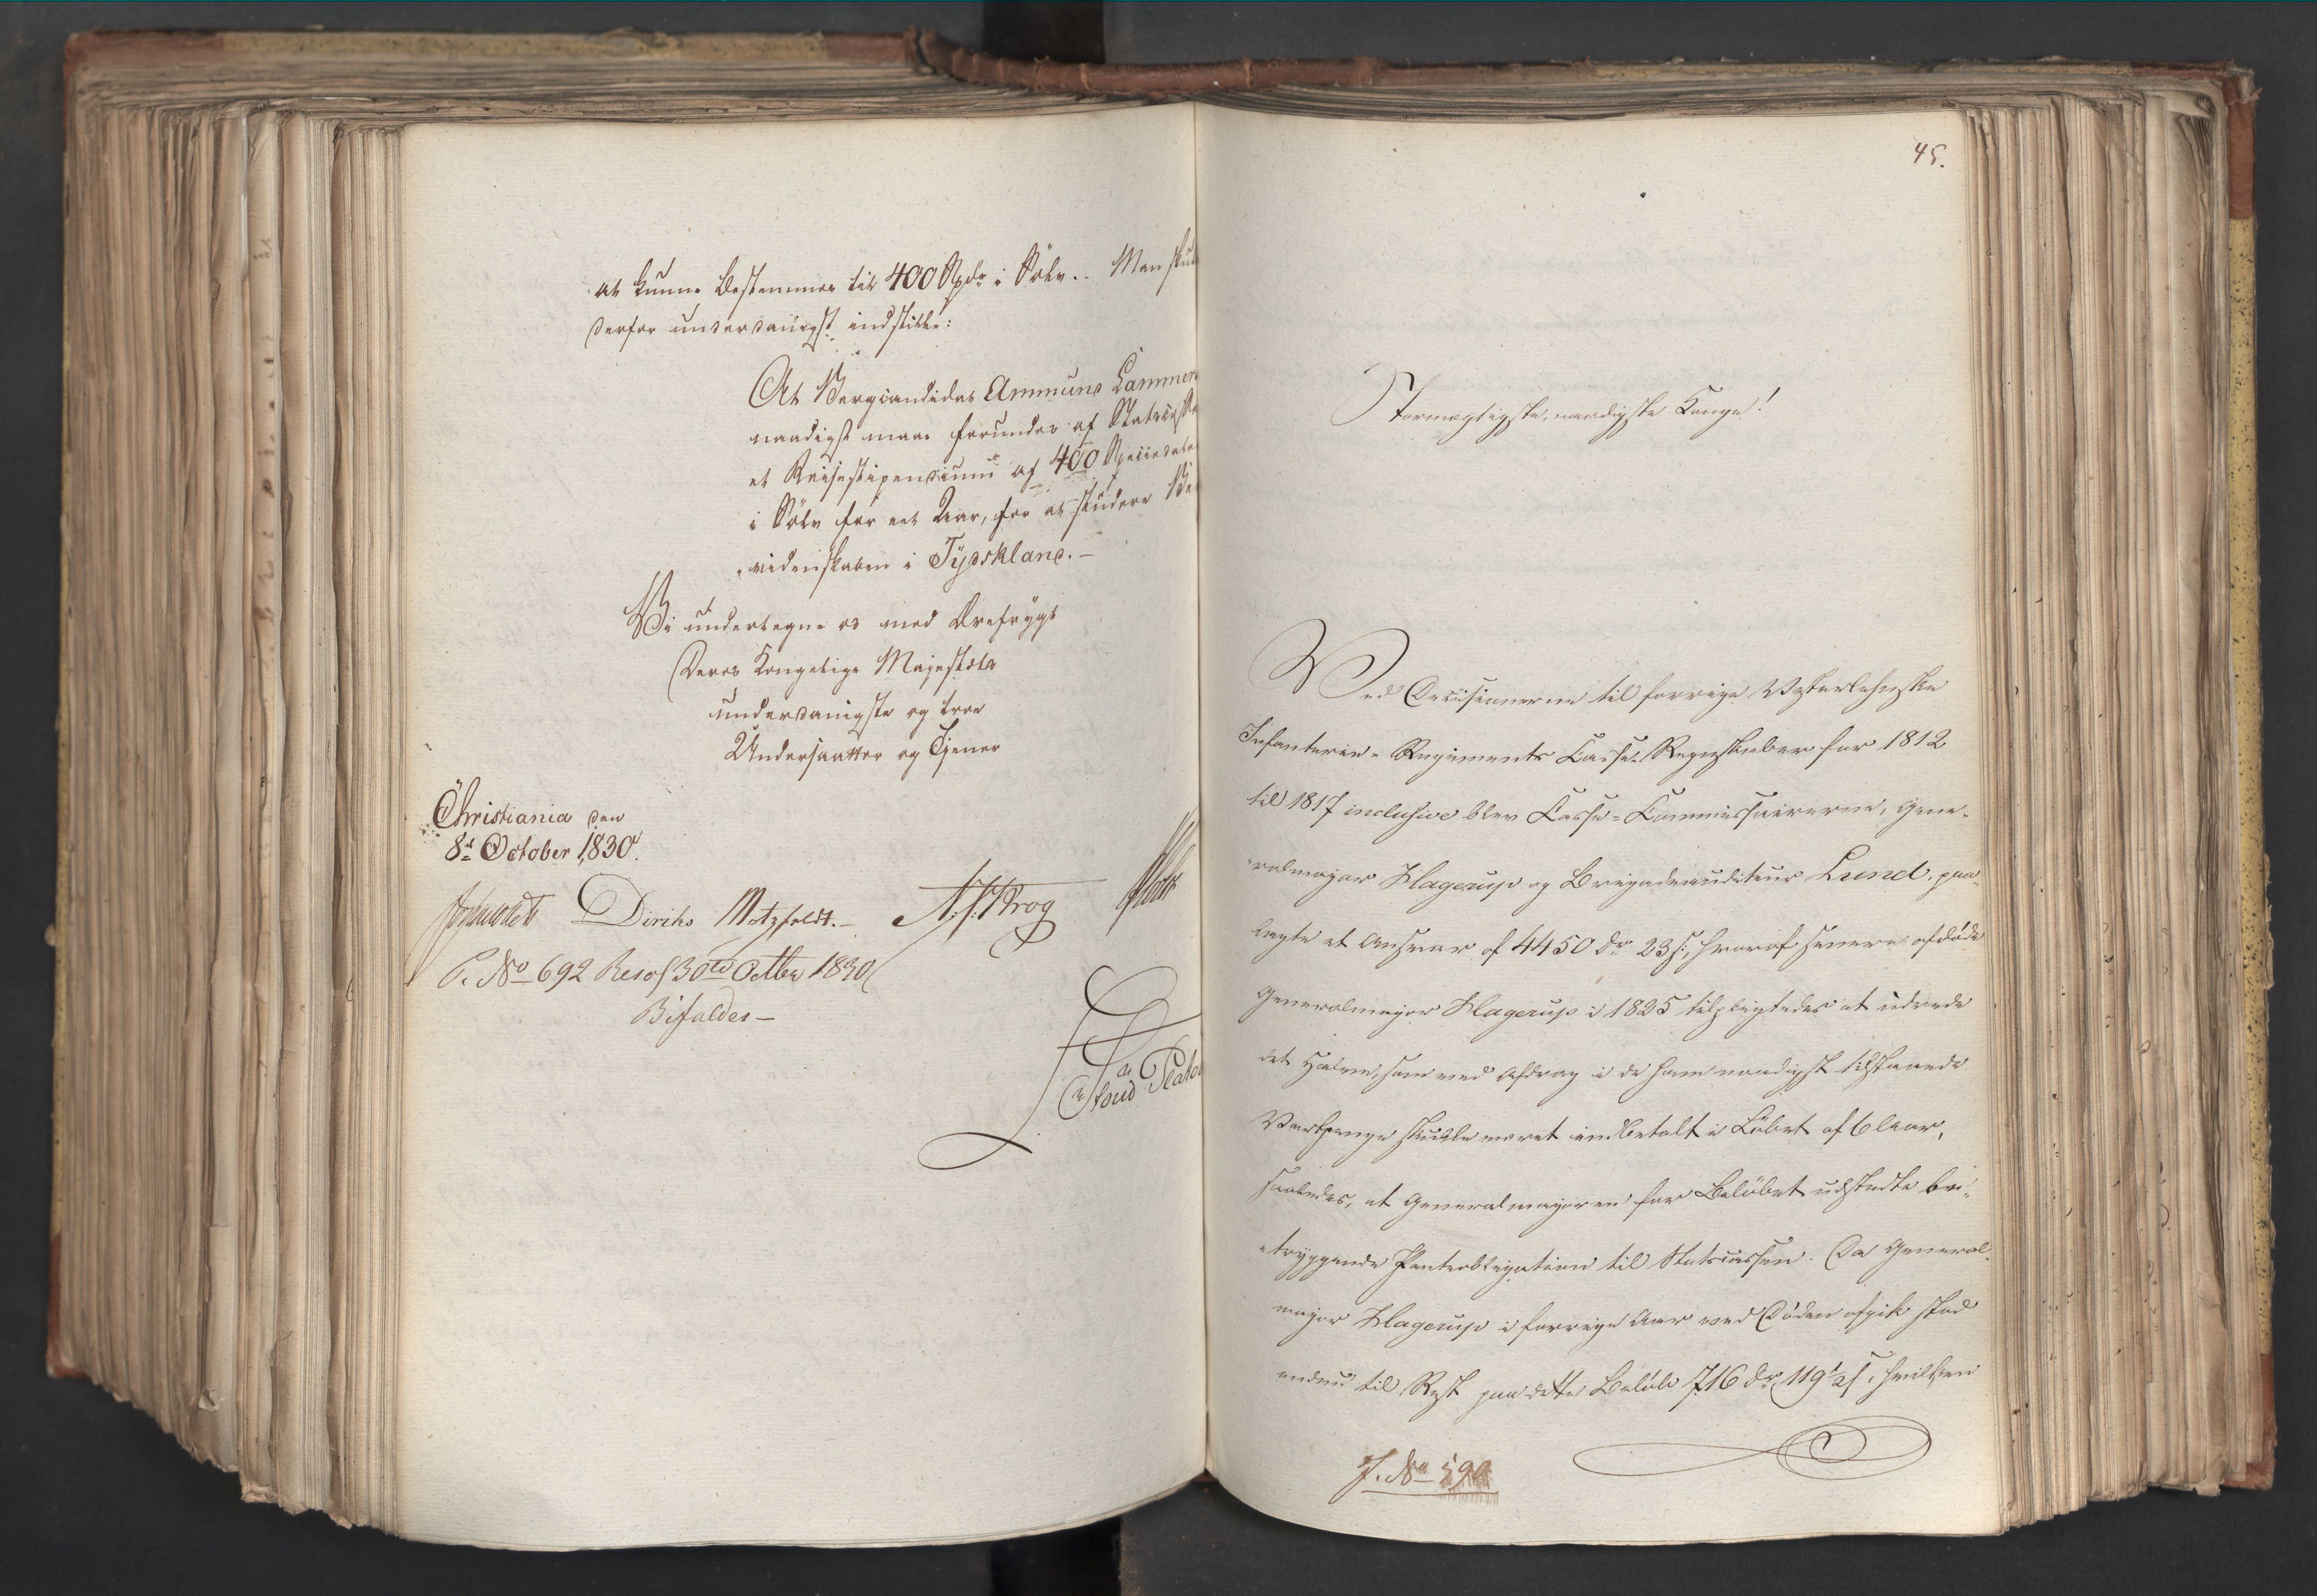 at kunne bestemmes til 400 Spdr i Sölv. Man skul
derfor underdanigst indstille:
At Bergcandidat Ammund Lammers
naadigst maae forundes af Statscasse
et Reisestipendium af 400 Speciedaler
i Sölv for eet Aar, for at studere Be
videnskaben i Tydskland. –
Vi undertegne os med Ærefrygt
Deres Kongelige Majestæts
underdanigste og troe
Undersaatter og Tjener
Christiania den
8de October 1830.
Diriks Motzfeldt. – Krog
P. No 692 Resol 30te Octbr 1830
Bifaldes –
45.
Stormægtigste, naadigste Konge!
Ved Decisionerne til forrige Vesterlehnske
Infanterie-Regiments Casse-Regnskaber for 1812
til 1817 inclusive blev Casse-Commissairerne, Gene-
ralmajor Hagerup og Brigadeauditeur Lund, paa-
lagte et Ansvar af 4450 dr 23 s, hvoraf senere afdöde
Generalmajor Hagerup i 1825 tilpligtedes at udrede
det Halve, som ved Afdrag i de ham naadigst tilstaaede
Vartpenge skulde været indbetalt i Löbet af 6 Aar,
saaledes, at Generalmajoren for Belöbet udstedte be-
tryggende Panteobligation til Statscassen. Da General-
major Hagerup i forrige Aar ved Döden afgik stod
endnu til Rest paa dette Belöb 716 dr 119 1/2 s, hvilken
J. No 590